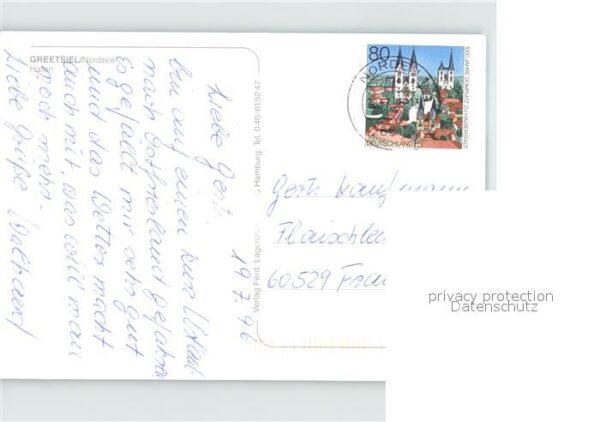 GREETSIEL/Nordsee
Hafen
19.7.96
Liebe Gert.
bin auf einen kurz Urlaub
nach Ostfriesland gefahren
es gefällt mir sehr gut
und das Wetter macht
auch mit, was will man
noch mehr.
Liebe Grüße
Verlag Ferd. Lagerbau Hamburg, Tel. 0 40-61 52 47
80
DEUTSCHLAND
1000 JAHRE DOMPLATZ ZU HALBERSTADT
NORDEN
60529
privacy protection
Datenschutz